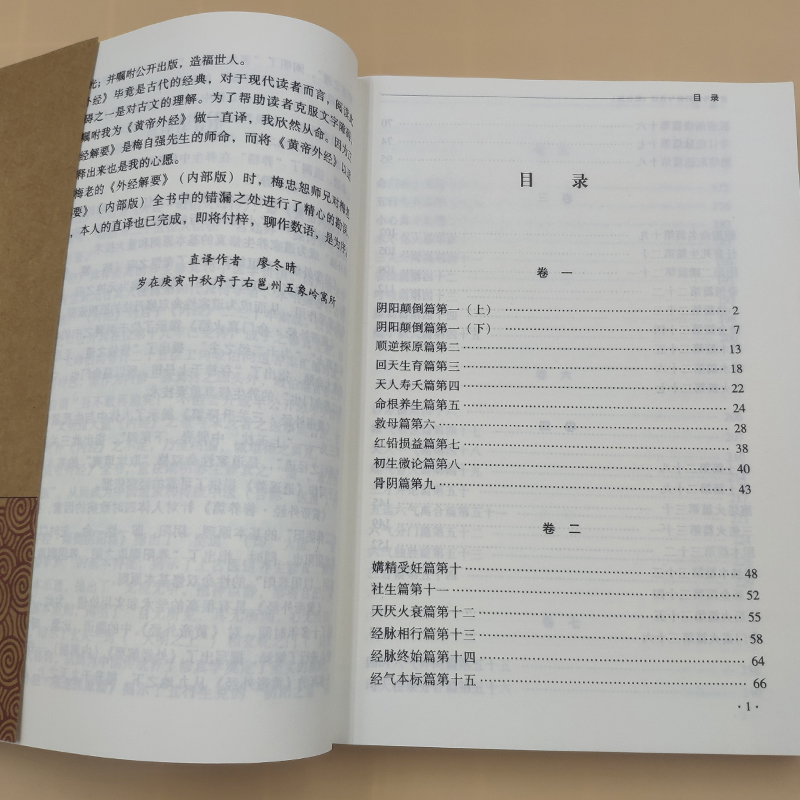 光；并嘱咐公开出版，造福世人。
外经》毕竟是古代的经典，对于现代读者而言，阅读此
碍之一是对古文的理解。为了帮助读者克服文字障碍，
嘱咐我为《黄帝外经》做一直译，我欣然从命。因为
经解要》是梅自强先生的师命，而将《黄帝外经》以
释出来也是我的心愿。
梅老的《外经解要》（内部版）时，梅忠恕师兄对梅老
要》（内部版）全书中的错漏之处进行了精心的勘误
，本人的直译也已完成，即将付梓，聊作数语，是为序。
直译作者 廖冬晴
岁在庚寅中秋序于右邕州五象岭寓所
目 录
目 录
卷 一
阴阳颠倒篇第一（上） 2
阴阳颠倒篇第一（下） 7
顺逆探原篇第二 13
回天生育篇第三 18
天人寿夭篇第四 22
命根养生篇第五 24
救母篇第六 28
红铅损益篇第七 38
初生微论篇第八 40
骨阴篇第九 43
卷 二
媾精受妊篇第十 48
社生篇第十一 52
天厌火衰篇第十二 55
经脉相行篇第十三 58
经脉终始篇第十四 64
经气本标篇第十五 66
·1·